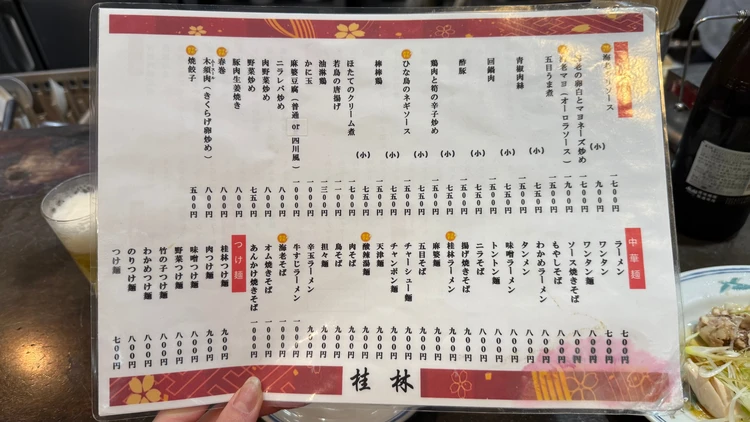 海老チリソース 一七〇〇円
(小) 九〇〇円
海老の卵白とマヨネーズ炒め 一七〇〇円
海老マヨ(オーロラソース) 一九〇〇円
五目うま煮 一五〇〇円
(小) 七五〇円
青椒肉絲 一五〇〇円
(小) 七五〇円
回鍋肉 一五〇〇円
(小) 七五〇円
酢豚 一五〇〇円
(小) 七五〇円
鶏肉と筍の辛子炒め 一五〇〇円
(小) 七五〇円
ひな鳥のネギソース 一五〇〇円
(小) 七五〇円
棒棒鶏 一五〇〇円
(小) 七五〇円
ほたてのクリーム煮 一五〇〇円
若鳥の唐揚げ 一一〇〇円
油淋鶏 一三〇〇円
かに玉 一〇〇〇円
麻婆豆腐(普通 or 四川風) 一〇〇〇円
ニラレバ炒め 八〇〇円
肉野菜炒め 八〇〇円
野菜炒め 七五〇円
豚肉生姜焼き 八〇〇円
春巻 八〇〇円
木須肉(きくらげ卵炒め) 八〇〇円
焼餃子 五〇〇円
中華麺
ラーメン 七〇〇円
ワンタン 七〇〇円
ワンタン麺 八〇〇円
ソース焼きそば 八〇〇円
もやしそば 八〇〇円
わかめラーメン 八〇〇円
タンメン 八〇〇円
味噌ラーメン 八〇〇円
トントン麺 八〇〇円
ニラそば 八〇〇円
揚げ焼きそば 九〇〇円
桂林ラーメン 九〇〇円
麻婆麺 九〇〇円
五目そば 九〇〇円
チャーシュー麺 九〇〇円
チャンポン麺 九〇〇円
天津麺 九〇〇円
酸辣湯麺 九〇〇円
肉そば 九〇〇円
鳥そば 九〇〇円
担々麺 九〇〇円
辛玉ラーメン 九〇〇円
牛すじラーメン 一〇〇〇円
海老そば 一〇〇〇円
オム焼きそば 一〇〇〇円
あんかけ焼きそば 一〇〇〇円
つけ麺
桂林つけ麺 九〇〇円
肉つけ麺 九〇〇円
味噌つけ麺 八〇〇円
野菜つけ麺 八〇〇円
竹の子つけ麺 八〇〇円
わかめつけ麺 八〇〇円
のりつけ麺 八〇〇円
つけ麺 七〇〇円
桂林